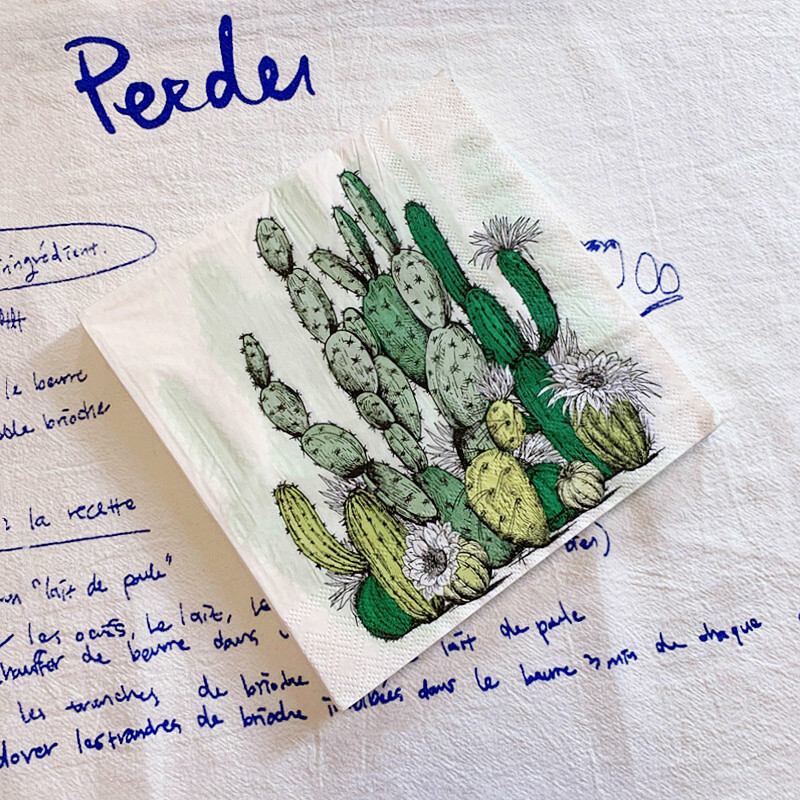 Perdu
ingrédient.
OO
le beurre
brioche
: la recette
"lait de poule"
les oeufs, le lait, le
chauffer de beurre dans
lait de poule
les tranches de brioche
dover les trandres de brioche imbibées dans le beurre 3 min de chaque